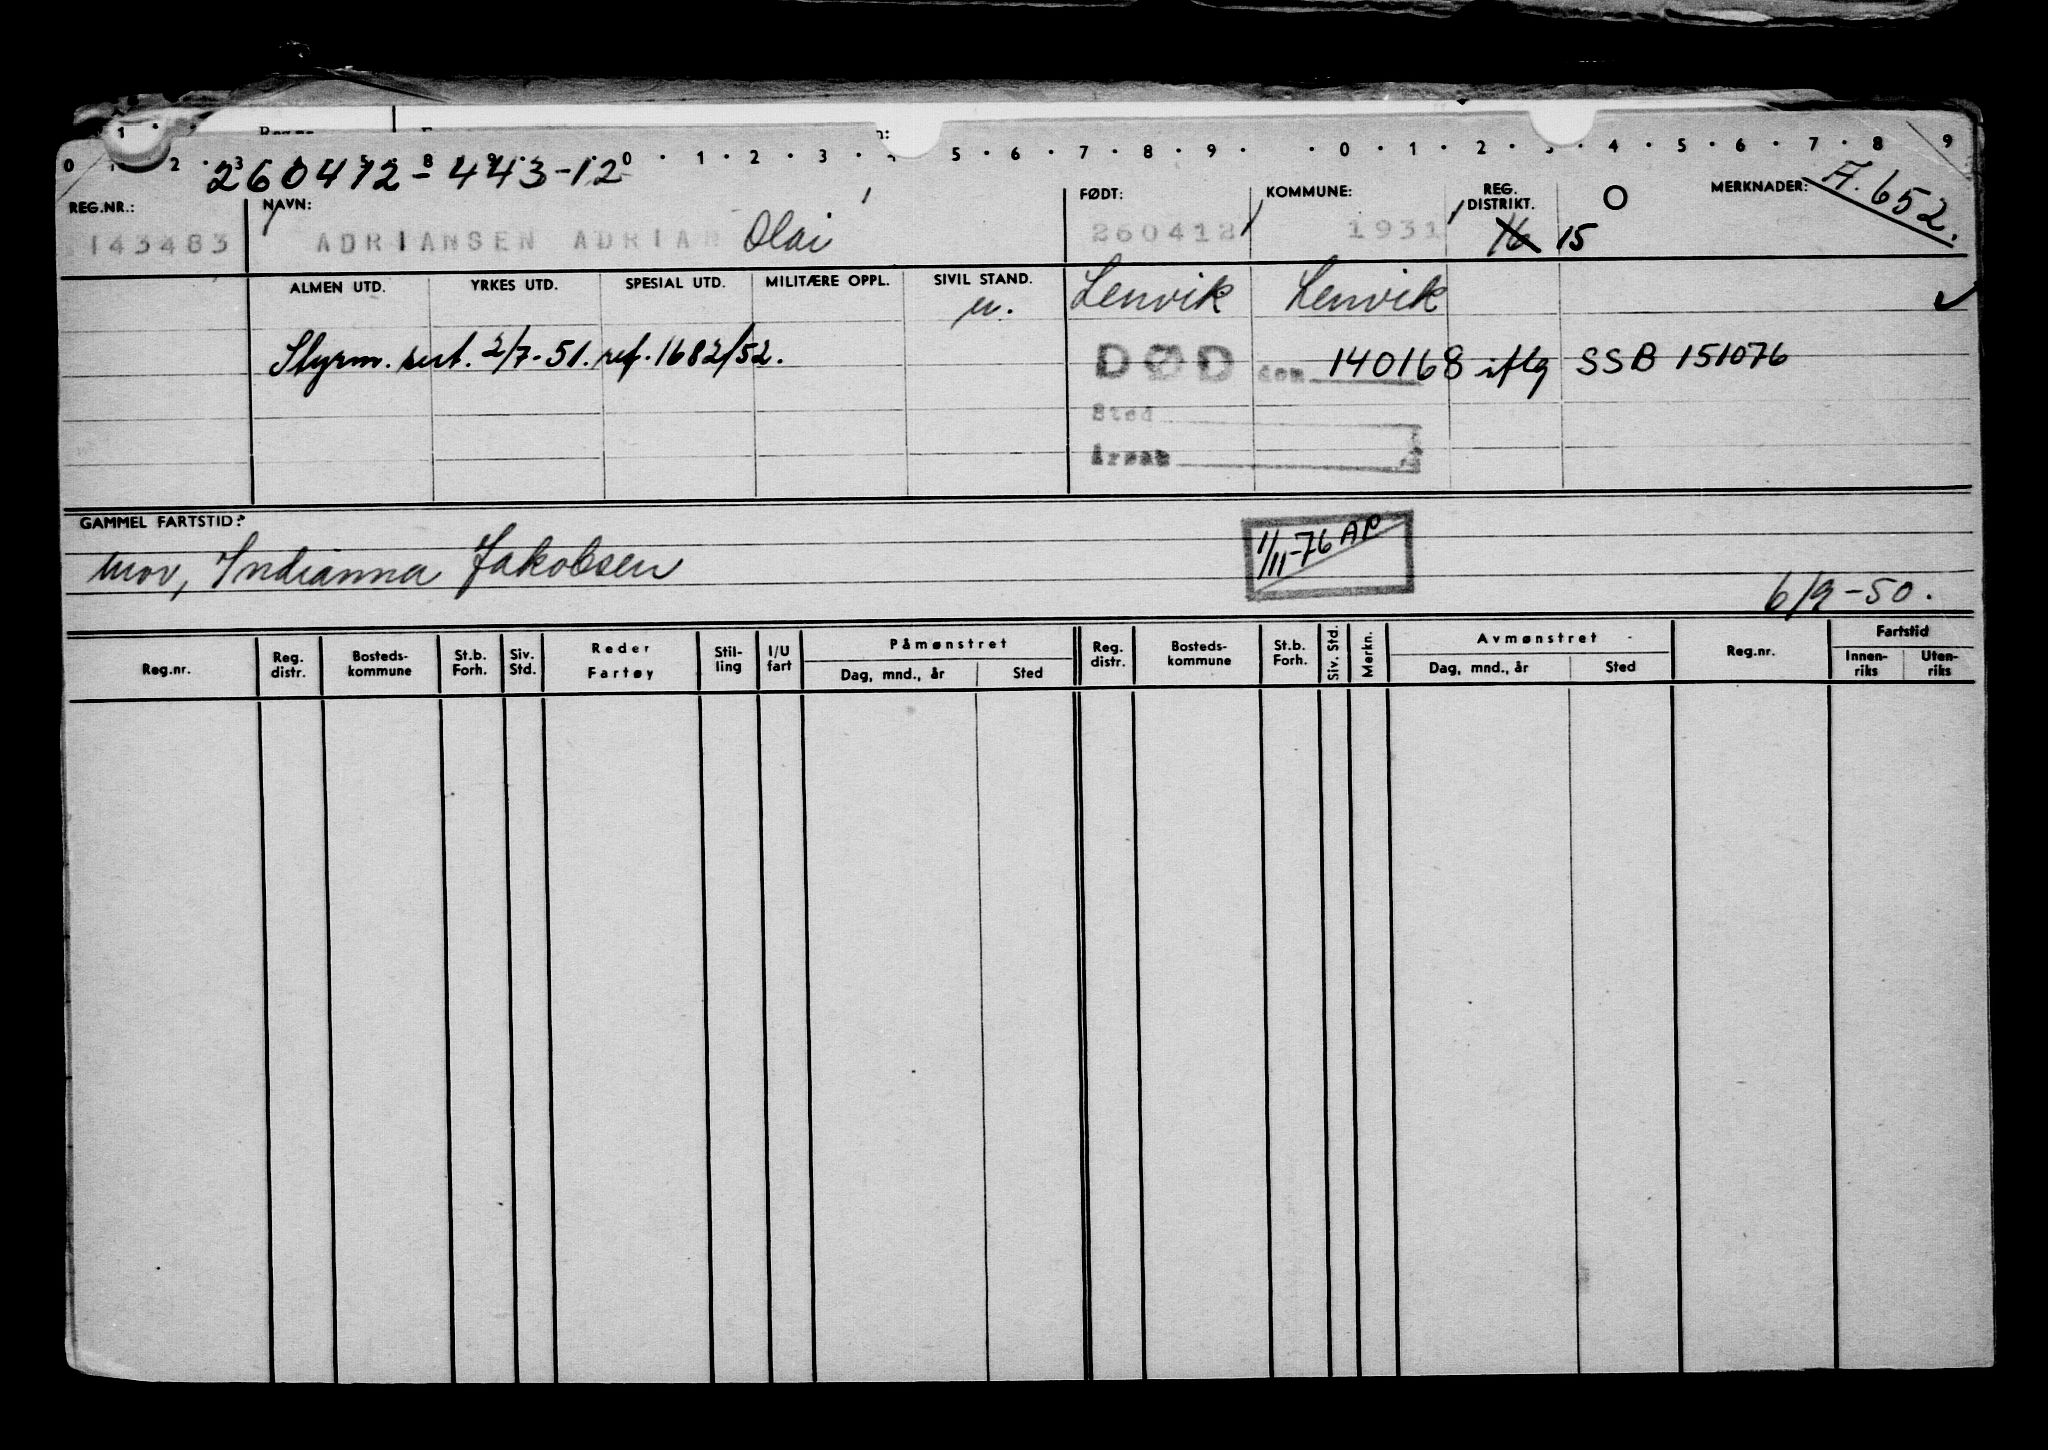 0 1 2 · 3 8 9 · 0 · 1 · 2 · 3 · 4 5 · 6 · 7 · 8 · 9 · · 0 · 1 · 2 · 3 · 4 · 5 · 6 · 7 · 8 9
260412-443-12
A.652.
REG.NR.: NAVN: FØDT: KOMMUNE: REG. DISTRIKT. O MERKNADER:
143483 ADRIANSEN ADRIAN Olai 260412 1931 16 15
ALMEN UTD. YRKES UTD. SPESIAL UTD. MILITÆRE OPPL. SIVIL STAND. Lenvik Lenvik
u.
Styrm. sert. 2/7-51. ref. 1682/52. DØD den 140168 iflg SSB 151076
Sted
Årsak
GAMMEL FARTSTID:
1/11-76 AP
mor, Indianna Jakobsen
6/9-50.
Reg.nr. Reg. distr. Bosteds-kommune St.b. Forh. Siv. Std. Reder Fartøy Stil-ling I/U fart Påmønstret Dag, mnd., år Sted Reg. distr. Bosteds-kommune St.b. Forh. Siv. Std. Merkn. Avmønstret Dag, mnd., år Sted Reg.nr. Fartstid Innen-riks Uten-riks